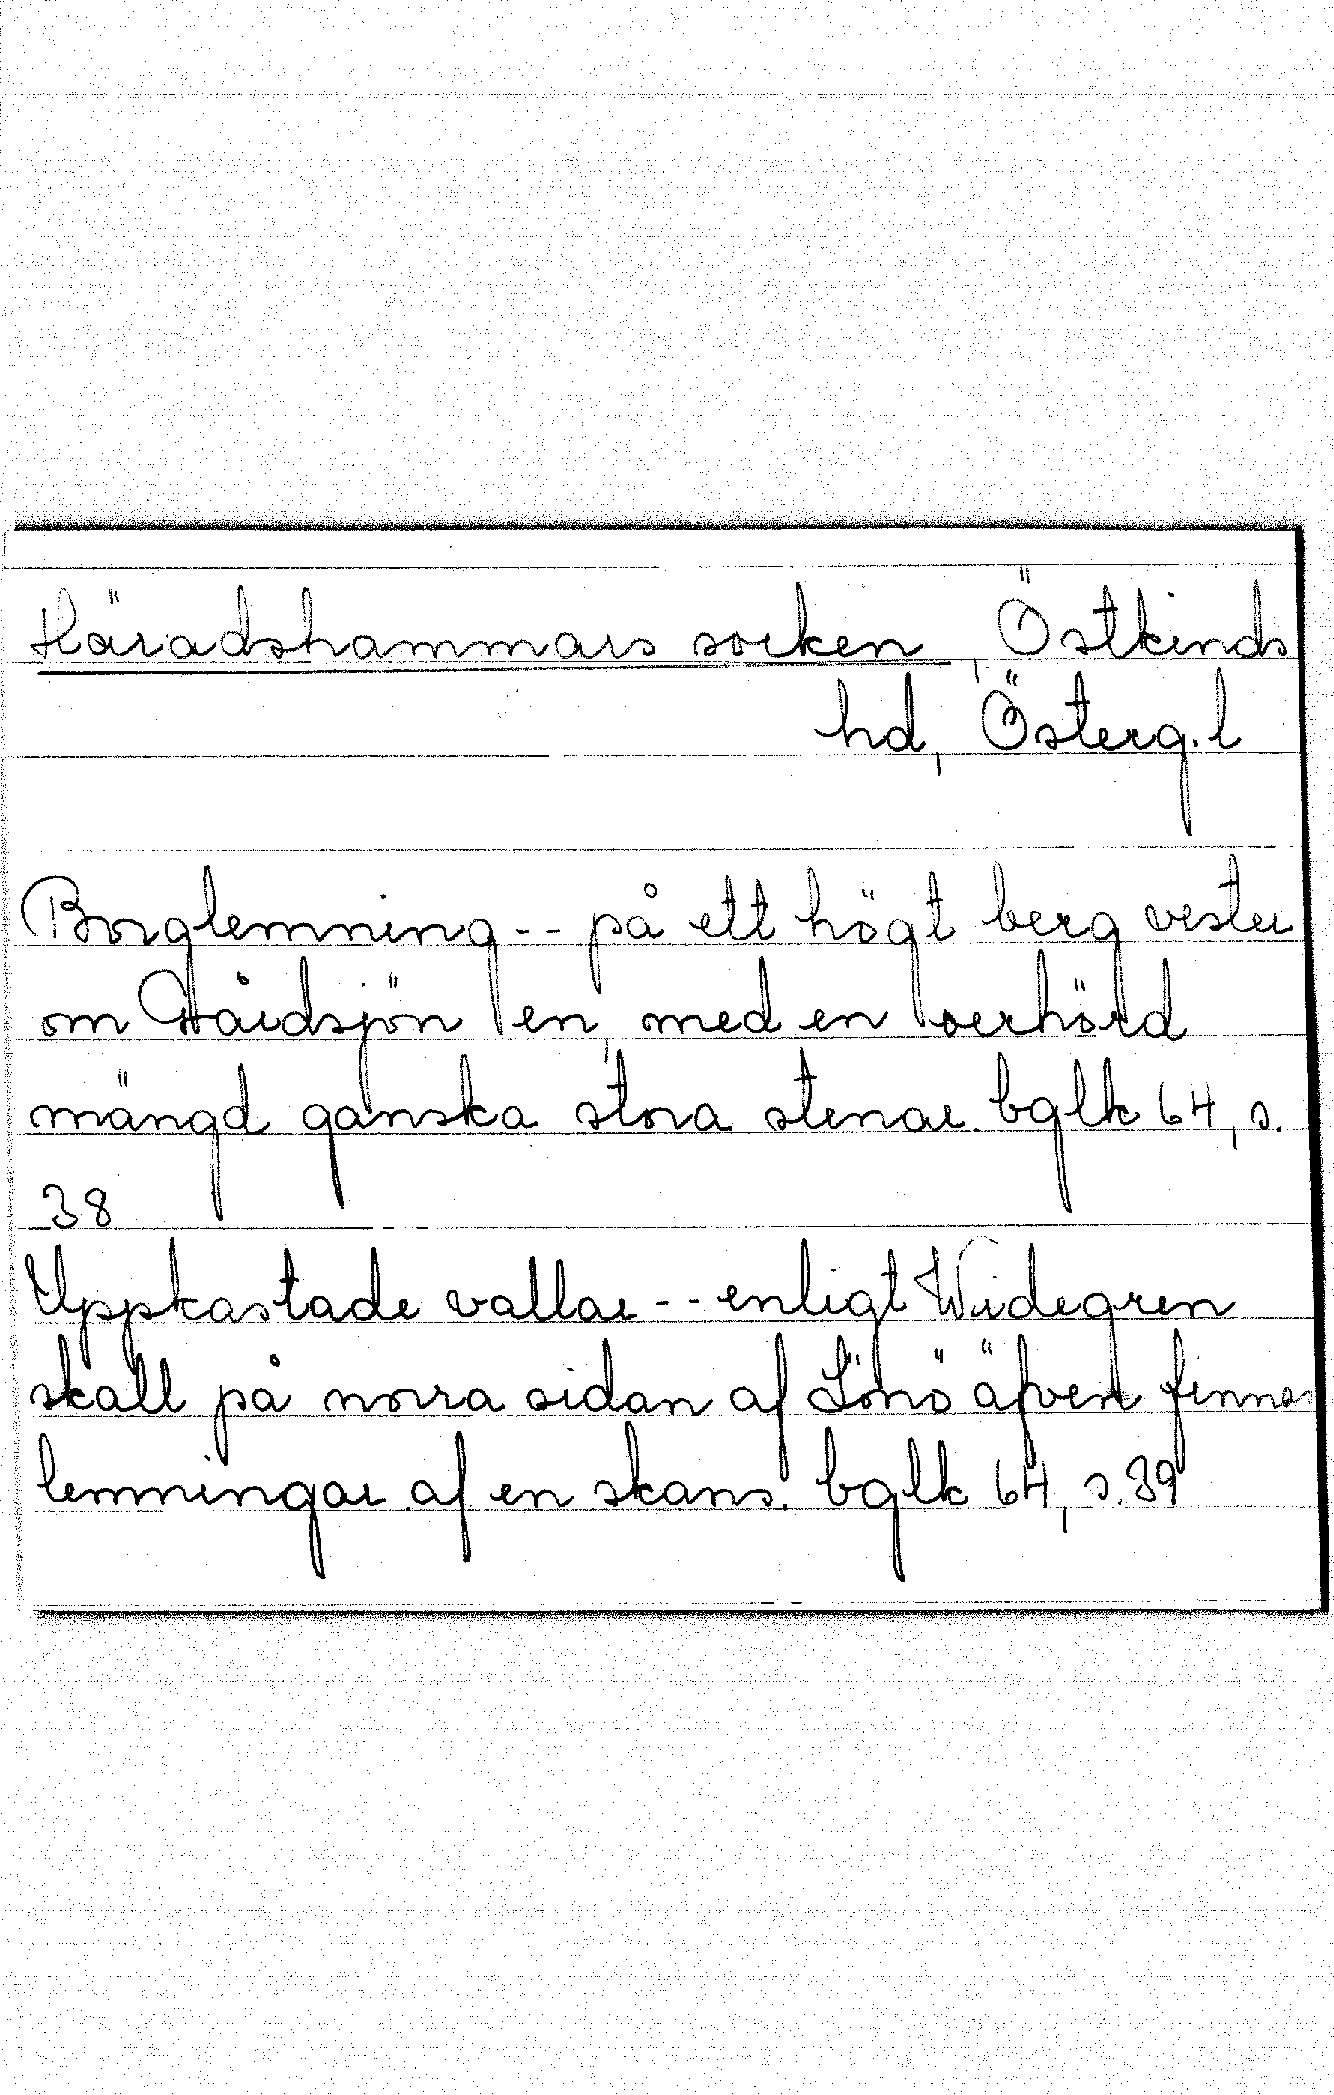 Häradshammars socken, Östkinds
hd, Österg.l
Borglemning -- på ett högt berg vester
om Gårdsjön en, med en oerhörd
mängd ganska stora stenar. bglk 64, s.
38
Uppkastade vallar -- enligt Widegren
skall på norra sidan af Lönö äfven finnas
lemningar af en skans. bglk 64, s. 39